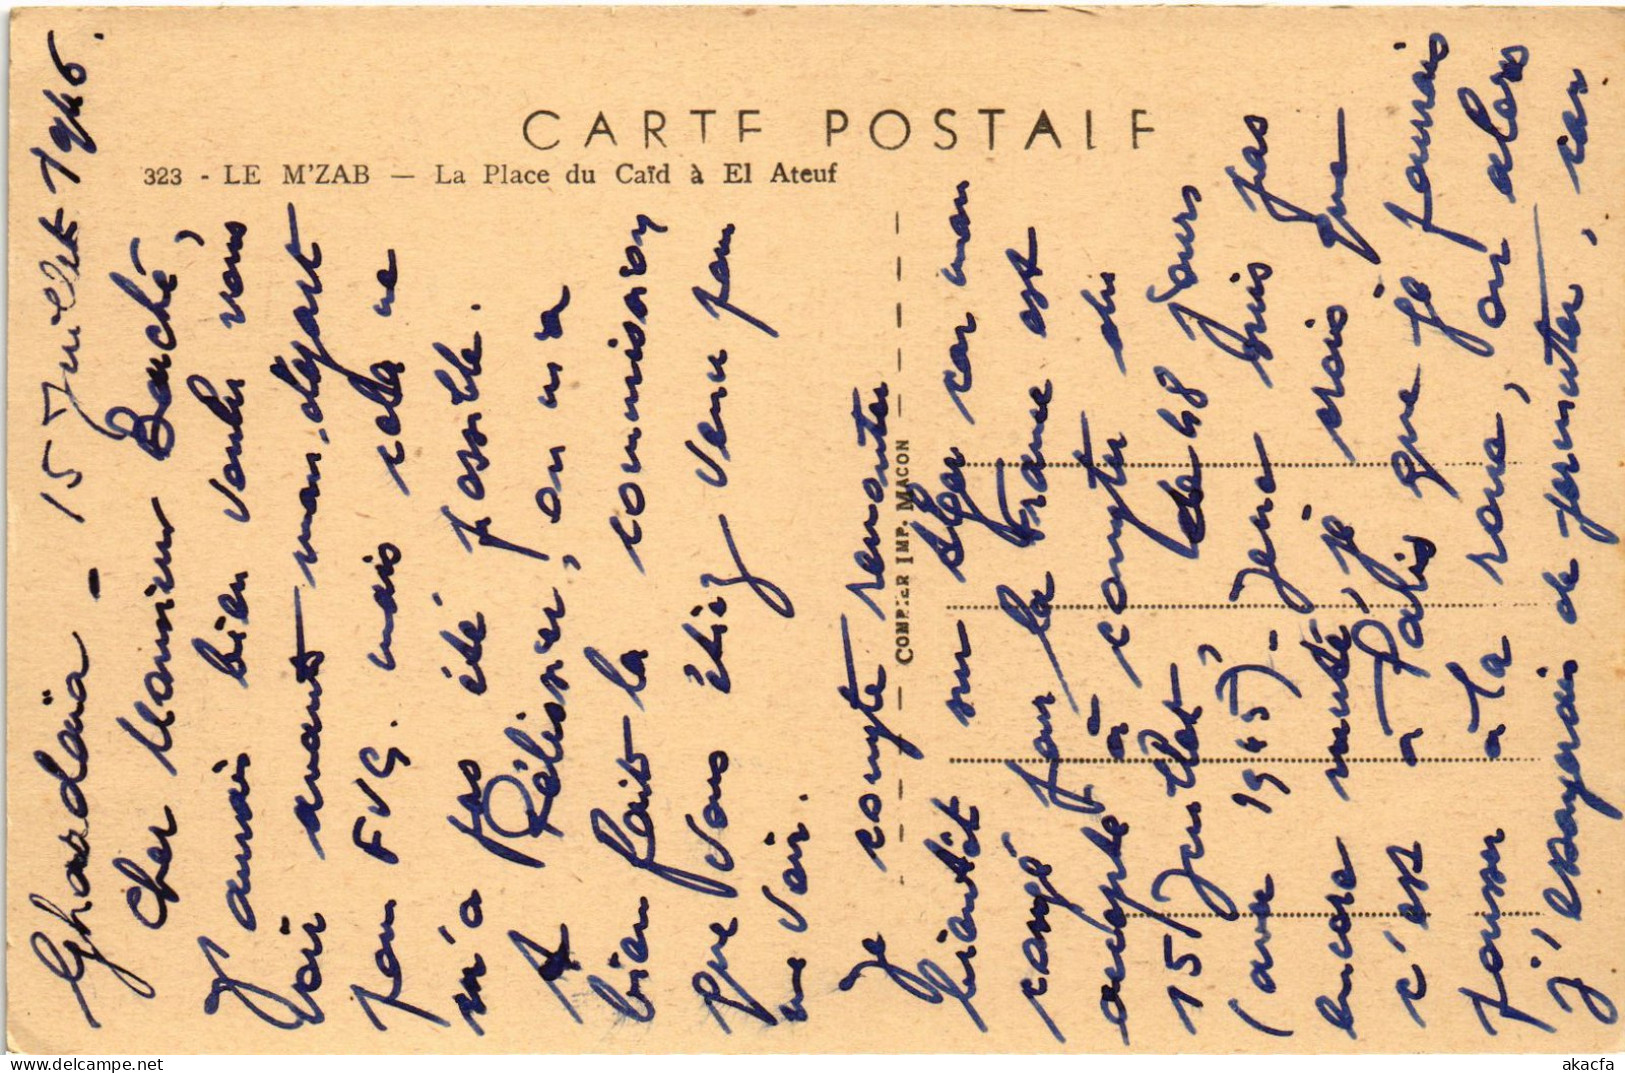 CARTE POSTALE
323 - LE M'ZAB — La Place du Caïd à El Ateuf
COMBIER IMP. MACON
Ghardaïa - 15 Juillet 1946.
Cher Monsieur Bauché,
J'aurais bien voulu vous
voir avant mon départ
pour FVG. mais cela ne
m'a pas été possible.
A Pélissier, on m'a
bien fait la commission
que vous étiez venu pour
me voir.
Je compte remonter
bientôt sur Alger car mon
congé pour la France est
accepté à compter du
15 Juillet, de 48 jours
(avec 1945). Je ne suis pas
encore muté, je crois que
c'est à Paris que je pourrais
pousser à la roue, ou alors
j'essayerais de permuter, car
akacfa